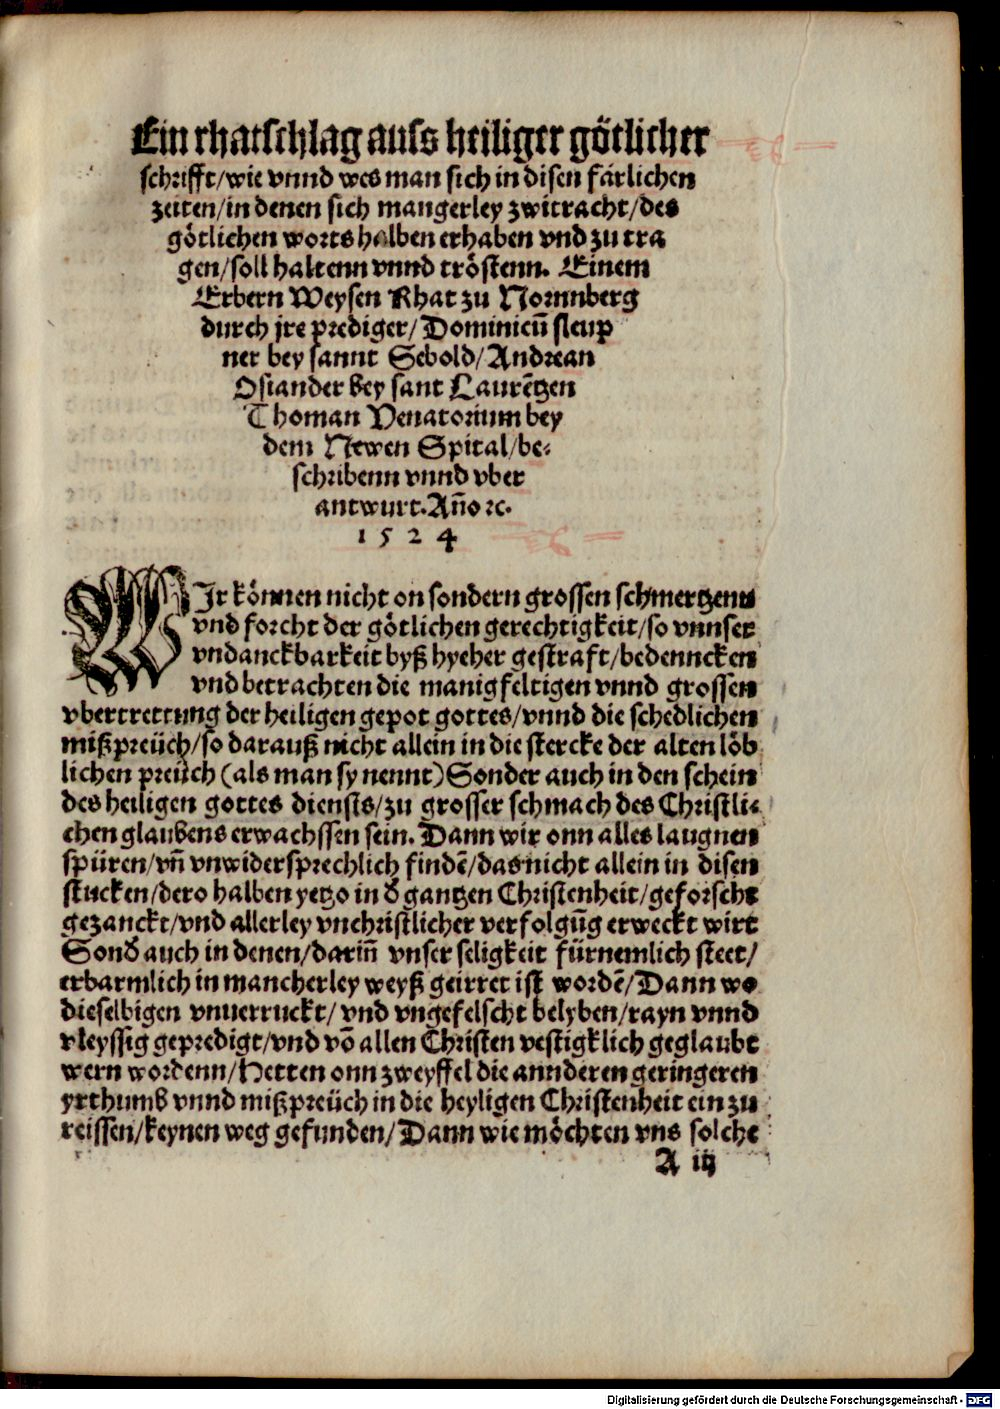 Ein rhatschlag auss heiliger götlicher
schrifft/wie vnnd wes man sich in disen färlichen
zeiten/in denen sich mangerley zwitracht/des
götlichen worts halben erhaben vnd zu tra
gen/soll haltenn vnnd tröstenn. Einem
Erbern Weysen Rhat zu Nornnberg
durch jre prediger/Dominicū sleup
ner bey sannt Sebold/Andrean
Osiander bey sant Laurētzen
Thoman Venatorium bey
dem Newen Spital/be-
schribenn vnnd vber
antwurt. Año ꝛc.
1524
WIr können nicht on sondern grossen schmertzenn
vnd forcht der götlichen gerechtigkeit/so vnnser
vndanckbarkeit byß hyeher gestraft/bedenncken
vnd betrachten die manigfeltigen vnnd grossen
vbertrettung der heiligen gepot gottes/vnnd die schedlichen
mißpreüch/so darauß nicht allein in die stercke der alten löb
lichen preüch (als man sy nennt) Sonder auch in den schein
des heiligen gottes diensts/zu grosser schmach des Christli-
chen glaubens erwachssen sein. Dann wir onn alles laugnen
spüren/vñ vnwidersprechlich findē/das nicht allein in disen
stucken/dero halben yetzo in d' gantzen Christenheit/geforscht
gezanckt/vnd allerley vnchristlicher verfolgūg erweckt wirt
Sond' auch in denen/dariñ vnser seligkeit fürnemlich steet/
erbarmlich in mancherley weyß geirret ist wordē/Dann wo
dieselbigen vnuerruckt/vnd vngefelscht belyben/rayn vnnd
vleyssig gepredigt/vnd vō allen Christen vestigklich geglaubt
wern wordenn/Hetten onn zweyffel die annderen geringeren
yrthumb vnnd mißpreüch in die heyligen Christenheit ein zu
reissen/keynen weg gefunden/Dann wie möchten vns solche
A iij
Digitalisierung gefördert durch die Deutsche Forschungsgemeinschaft - DFG